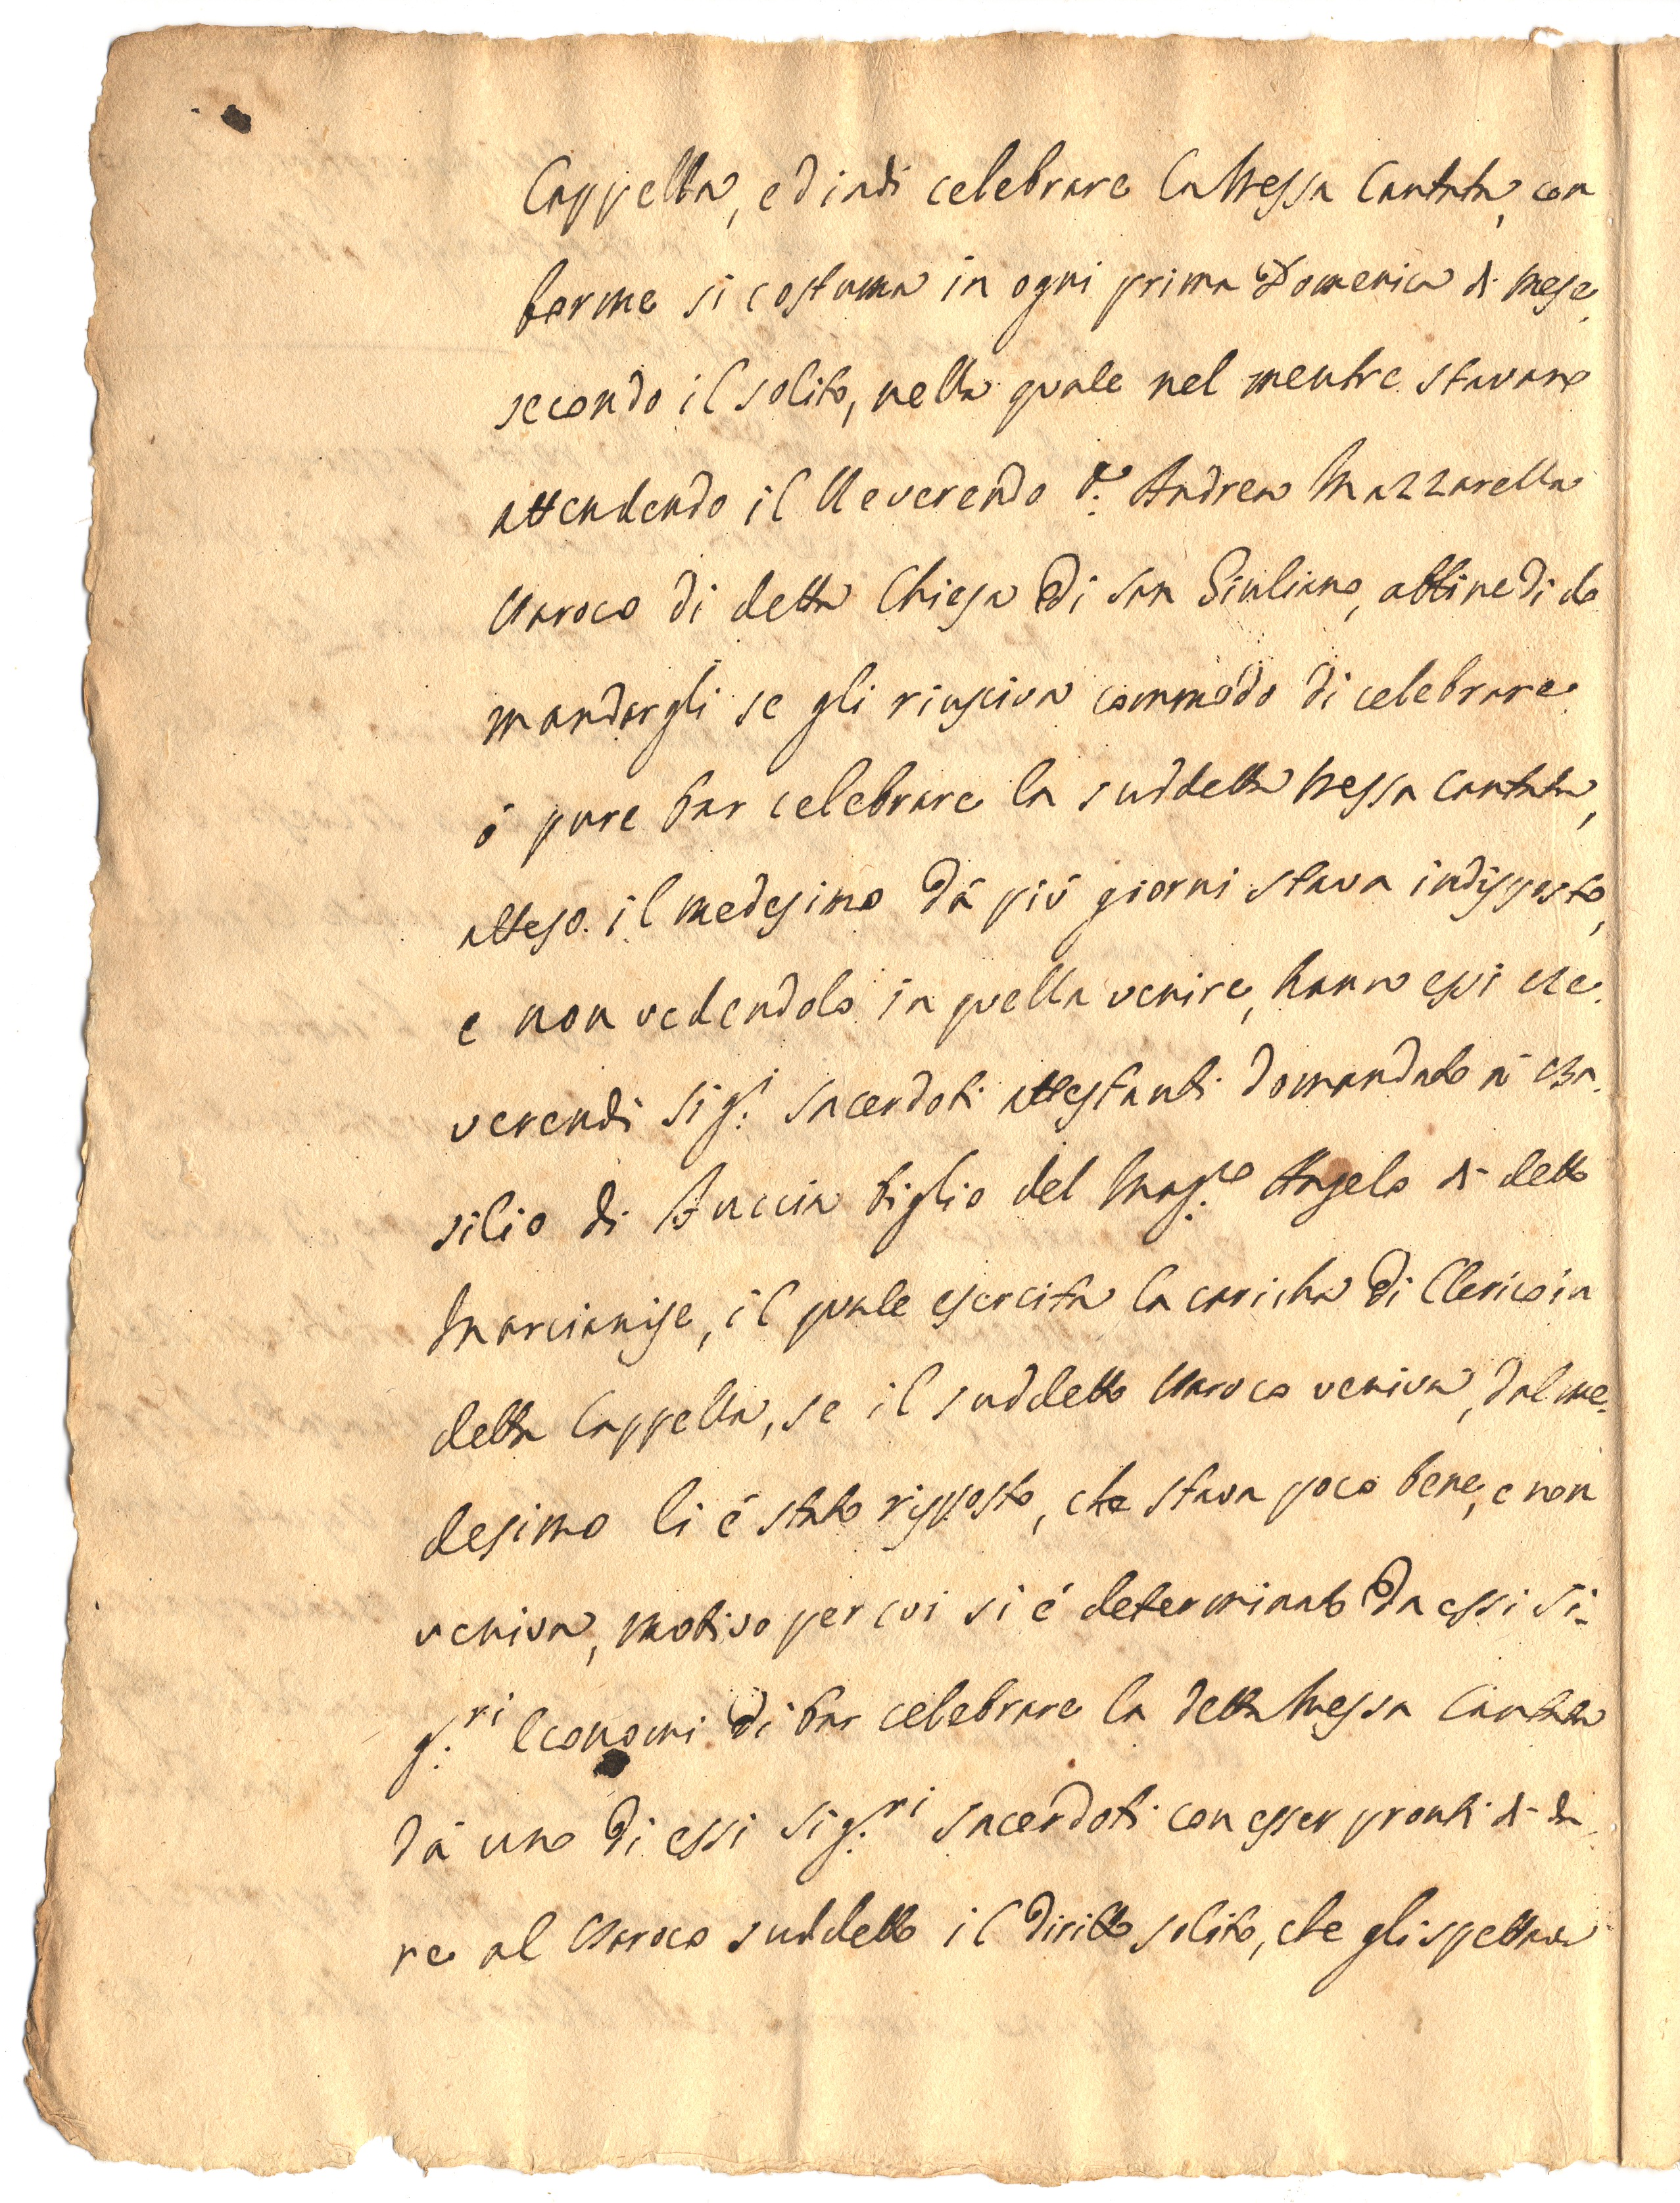 Cappella, ed indi celebrare la Messa Cantata, con
forme si costuma in ogni prima Domenica di mese,
secondo il solito, nella quale nel mentre stavano
attendendo il Reverendo D. Andrea Mazzarella
Paroco di detta Chiesa di San Giuliano, affine di do
mandargli se gli riusciva commodo di celebrare
ò pure far celebrare la suddetta Messa cantata,
atteso il medesimo dà più giorni stava indisposto,
e non vedendolo in quella venire, hanno essi Re
verendi Sig.i Sacerdoti attestanti domandato à Ba
silio di Fuccia figlio del Mag.co Angelo di detto
Marcianise, il quale esercita la caricha di Clerico in
detta Cappella, se il suddetto Paroco veniva, dal me
desimo li è stato risposto, che stava poco bene, e non
veniva, motivo per cui si è determinato da essi Si-
g.ri Economi di far celebrare la detta Messa Cantata
dà uno di essi Sig.ri Sacerdoti con esser pronti di da
re al Paroco suddetto il diritto solito, che gli spettava